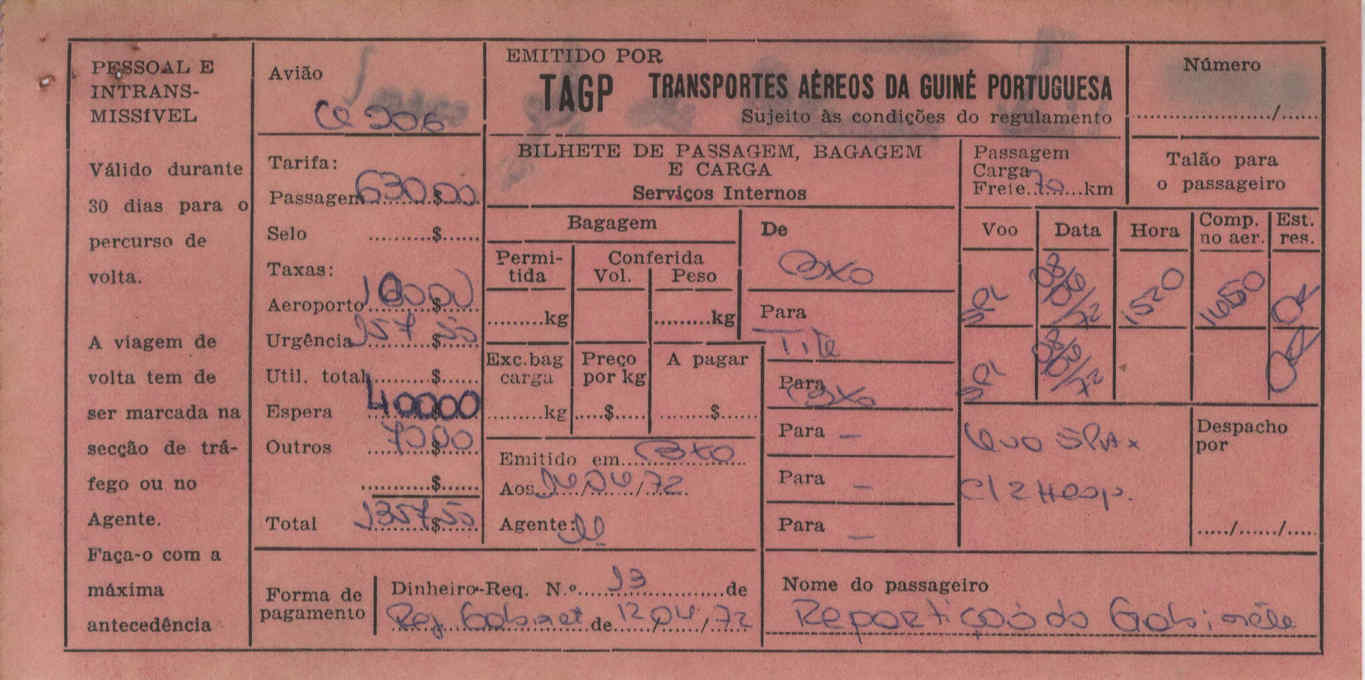 PESSOAL E
INTRANS-
MISSÍVEL
Válido durante
30 dias para o
percurso de
volta.
A viagem de
volta tem de
ser marcada na
secção de trá-
fego ou no
Agente.
Faça-o com a
máxima
antecedência
Avião
206
Tarifa:
Passagem 630$00
Selo ..........$......
Taxas:
Aeroporto
Urgência 157$50
Util. total ..........$......
Espera 40000
Outros 70$00
..........$......
Total 1357$50
EMITIDO POR
TAGP TRANSPORTES AÉREOS DA GUINÉ PORTUGUESA
Sujeito às condições do regulamento
BILHETE DE PASSAGEM, BAGAGEM
E CARGA
Serviços Internos
Passagem
Carga
Frete 70 km
Número
............../......
Talão para
o passageiro
Bagagem
Permi-
tida
Conferida
Vol. Peso
.........kg .........kg
Exc.bag
carga
Preço
por kg
A pagar
.........kg .....$..... .......$......
Emitido em Bxo
Aos /04/72
Agente:
De
Bxo
Para
Tite
Para
Bxo
Para —
Para —
Para —
Voo Data Hora Comp. no aer. Est. res.
SPL 08/ /72 1520 1450 OK
SPL 08/ /72 OK
Voo SPL
c/ 2 Hosp.
Despacho
por
...../...../.....
Forma de
pagamento
Dinheiro-Req. N.º 13 de
Rep. Gabinet de 12/04/72
Nome do passageiro
Repartição do Gabinete